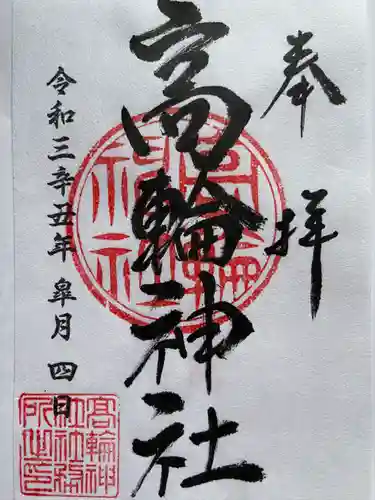 奉拝
高輪神社
令和三辛丑年 皐月 四日
高輪神社
高輪神
社社務
所之印